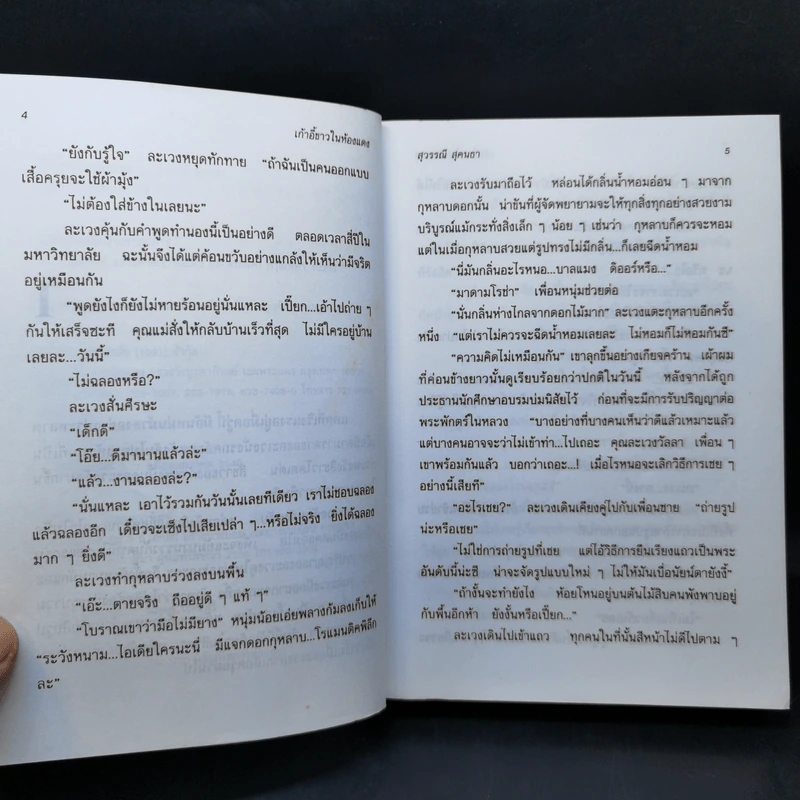 4
เก้าอี้ขาวในห้องแดง
“ยังกับรู้ใจ” ละเวงหยุดทักทาย “ถ้าฉันเป็นคนออกแบบ
เสื้อครุยจะใช้ผ้ามุ้ง”
“ไม่ต้องใส่ข้างในเลยนะ”
ละเวงคุ้นกับคำพูดทำนองนี้เป็นอย่างดี ตลอดเวลาสี่ปีใน
มหาวิทยาลัย ฉะนั้นจึงได้แต่ค้อนขวับอย่างแกล้งให้เห็นว่ามีจริต
อยู่เหมือนกัน
“พูดยังไงก็ยังไม่หายร้อนอยู่นั่นแหละ เปี๊ยก...เอ้าไปถ่าย ๆ
กันให้เสร็จซะที คุณแม่สั่งให้กลับบ้านเร็วที่สุด ไม่มีใครอยู่บ้าน
เลยละ...วันนี้”
“ไม่ฉลองหรือ?”
ละเวงสั่นศีรษะ
“เด็กดี”
“โอ๊ย...ดีมานานแล้วล่ะ”
“แล้ว...งานฉลองล่ะ?”
“นั่นแหละ เอาไว้รวมกันวันนั้นเลยทีเดียว เราไม่ชอบฉลอง
แล้วฉลองอีก เดี๋ยวจะเซ็งไปเสียเปล่า ๆ...หรือไม่จริง ยิ่งได้ฉลอง
มาก ๆ ยิ่งดี”
ละเวงทำกุหลาบร่วงลงบนพื้น
“เอ๊ะ...ตายจริง ถืออยู่ดี ๆ แท้ ๆ”
“โบราณเขาว่ามือไม่มียาง” หนุ่มน้อยเอ่ยพลางก้มลงเก็บให้
“ระวังหนาม...ไอเดียใครนะนี่ มีแจกดอกกุหลาบ...โรแมนติคพิลึก
ละ”
สุวรรณี สุคนธา
5
ละเวงรับมาถือไว้ หล่อนได้กลิ่นน้ำหอมอ่อน ๆ มาจาก
กุหลาบดอกนั้น น่าขันที่ผู้จัดพยายามจะให้ทุกสิ่งทุกอย่างสวยงาม
บริบูรณ์แม้กระทั่งสิ่งเล็ก ๆ น้อย ๆ เช่นว่า กุหลาบก็ควรจะหอม
แต่ในเมื่อกุหลาบสวยแต่รูปทรงไม่มีกลิ่น...ก็เลยฉีดน้ำหอม
“นี่มันกลิ่นอะไรหนอ...บาลแมง ดิออร์หรือ...”
“มาดามโรช่า” เพื่อนหนุ่มช่วยต่อ
“นั่นกลิ่นห่างไกลจากดอกไม้มาก” ละเวงแตะกุหลาบอีกครั้ง
หนึ่ง “แต่เราไม่ควรจะฉีดน้ำหอมเลยละ ไม่หอมก็ไม่หอมกันซี”
“ความคิดไม่เหมือนกัน” เขาลุกขึ้นอย่างเกียจคร้าน เผ้าผม
ที่ค่อนข้างยาวนั้นดูเรียบร้อยกว่าปกติในวันนี้ หลังจากได้ถูก
ประธานนักศึกษาอบรมบ่มนิสัยไว้ ก่อนที่จะมีการรับปริญญาต่อ
พระพักตร์ในหลวง “บางอย่างที่บางคนเห็นว่าดีแล้วเหมาะแล้ว
แต่บางคนอาจจะว่าไม่เข้าท่า...ไปเถอะ คุณละเวงวัลลา เพื่อน ๆ
เขาพร้อมกันแล้ว บอกว่าเถอะ...! เมื่อไรหนอจะเลิกวิธีการเชย ๆ
อย่างนี้เสียที”
“อะไรเชย?” ละเวงเดินเคียงคู่ไปกับเพื่อนชาย “ถ่ายรูป
น่ะหรือเชย”
“ไม่ใช่การถ่ายรูปที่เชย แต่ไอ้วิธีการยืนเรียงแถวเป็นพระ
อันดับนี้น่ะซี น่าจะจัดรูปแบบใหม่ ๆ ไม่ให้มันเบื่อนัยน์ตายังงี้”
“ถ้างั้นจะทำยังไง ห้อยโหนอยู่บนต้นไม้สิบคนพังพาบอยู่
กับพื้นอีกห้า ยังงั้นหรือเปี๊ยก...”
ละเวงเดินไปเข้าแถว ทุกคนในที่นั้นสีหน้าไม่ดีไปตาม ๆ